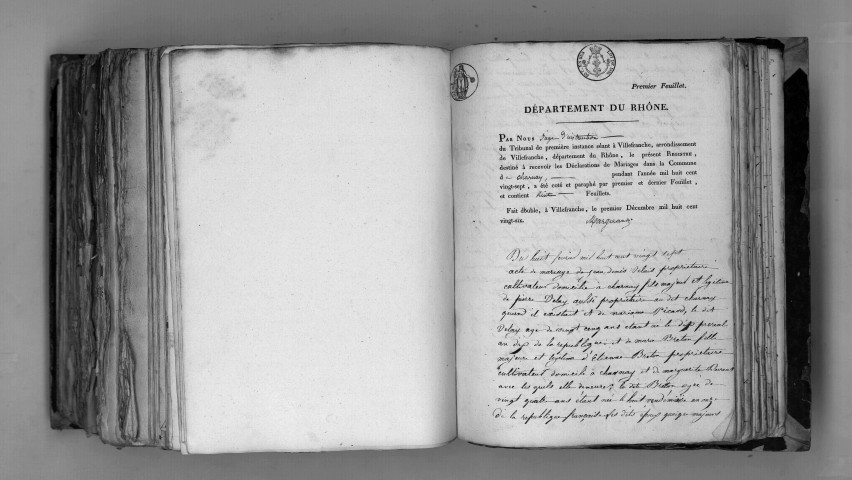 Premier Feuillet.
DÉPARTEMENT DU RHÔNE.
PAR NOUS juge d'instruction
du Tribunal de première instance séant à Villefranche, arrondissement
de Villefranche, département du Rhône, le présent REGISTRE,
destiné à recevoir les Déclarations de Mariages dans la Commune
de charnay, pendant l'année mil huit cent
vingt-sept, a été coté et paraphé par premier et dernier Feuillet,
et contient Feuillets.
Fait double, à Villefranche, le premier Décembre mil huit cent
vingt-six.
Du huit février mil huit cent vingt sept
acte de mariage de jean denis Delais propriétaire
cultivateur domicilié à charnay fils majeur et légitime
de pierre Delay aussi propriétaire au dit charnay
quand il existait et de mariane Picard, le dit
Delay age de vingt cinq ans etant né le dix
an dix de la republique et de marie Breton fille
majeure et légitime d'Etienne Breton propriétaire
cultivateur domicilié à charnay et de marguerite
avec les quels elle demeure, le dit Breton agee de
vingt quatre ans etant née le huit vendémiaire an onze
de la republique française les dits epoux quoique majeurs